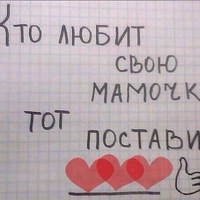 Кто любит
свою
мамочк
тот
постави